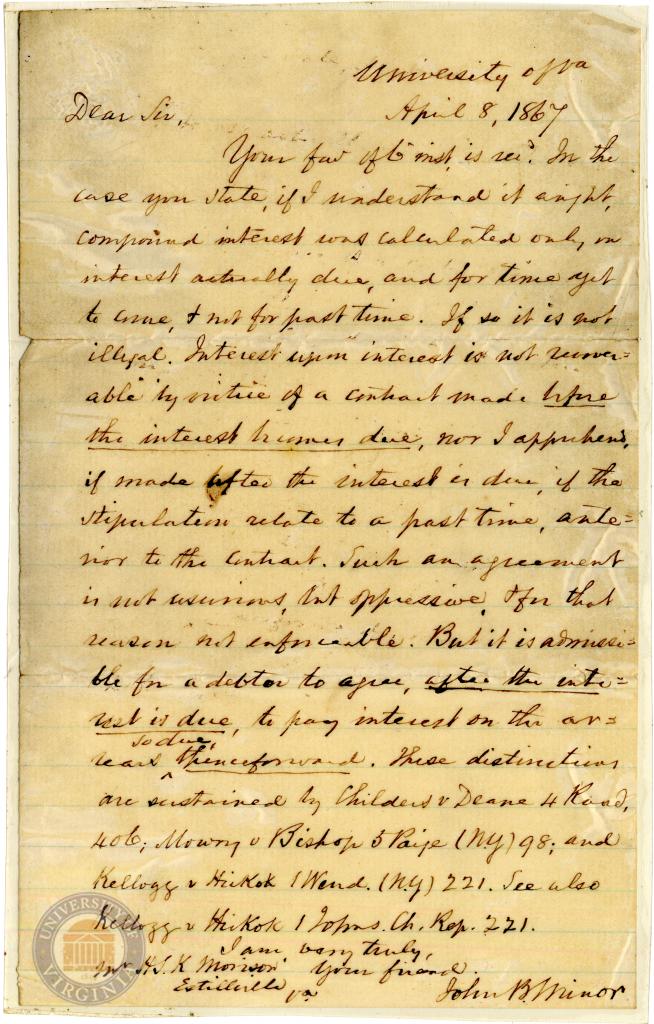 University of Va
April 8, 1867
Dear Sir,
Your fav of 6 inst, is rec'd. In the
case you state, if I understand it aright,
compound interest was calculated only on
interest actually due, and for time yet
to come, & not for past time. If so it is not
illegal. Interest upon interest is not recover=
able by virtue of a contract made before
the interest becomes due, nor I apprehend,
if made after the interest is due, if the
stipulation relate to a past time, ante=
rior to the contract. Such an agreement
is not usurious, but oppressive, & for that
reason not enforceable. But it is admissi=
ble for a debtor to agree, after the inte=
rest is due, to pay interest on the ar=
so due,
rears thenceforward. These distinctions
are sustained by Childers v Deane 4 Rand,
406; Mowry v Bishop 5 Paige (NY) 98; and
Kellogg v Hickok 1 Wend. (NY) 221. See also
Kellogg v Hickok 1 Johns. Ch. Rep. 221.
I am very truly,
Your friend
Mr. H.S.K Morison
Estillville Va
John B. Minor
UNIVERSITY OF VIRGINIA